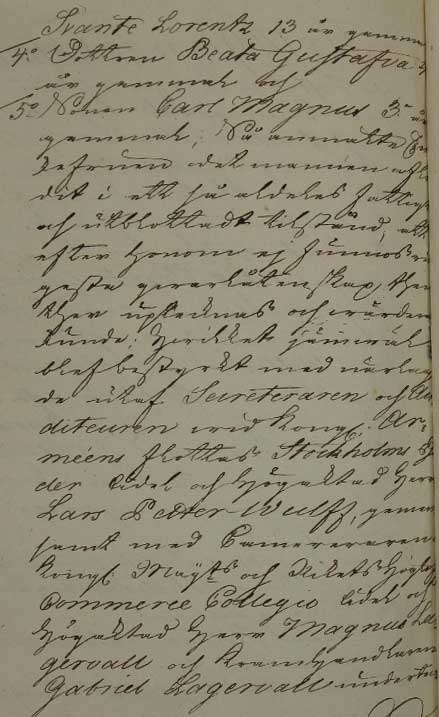 Svante Lorentz 13 år gammal
4:o Dottren Beata Gustafva
år gammal och
5:o Sonen Carl Magnus 3:
gammal; Så anmälte
att mannen
dit i ett så aldeles fattigt
och utblottadt tilstånd, att
efter honom ej funnos
gasta qvarlåtenskap, then
ther uptecknas och värderas
kunde; hvilket jämväl
blef bestyrkt med
de utaf Secreteraren och Au-
diteuren vid Kongl. Ar-
méens flottas Stockholms
der Ädel och Högaktad Herr
Lars Petter Wulff,
samt med Camereraren
Kongl: Maj:ts och Rikets Höglof
Commerce Collegio Ädel och
Högaktad Herr Magnus La-
gervall och Kramhandlaren
Gabriel Lagervall